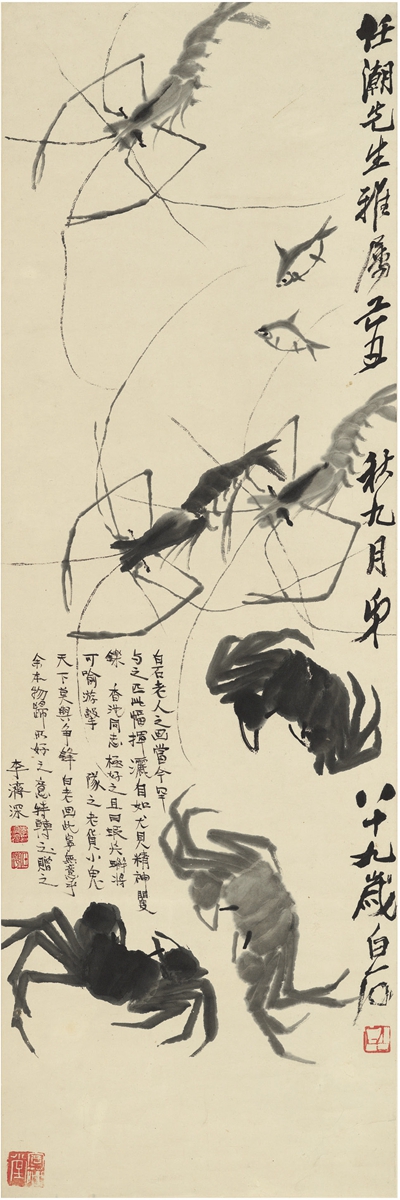 任潮先生雅屬 己丑 秋九月 弟 八十九歲白石
白石老人之画當今罕
与之匹此幅揮灑自如尤見精神矍
鑠 香 同志極好之且曰 將
可喻游擊 隊之老 小鬼
天下莫與爭鋒白老画此豈無意乎
余本物歸所好之意特轉以贈之
李濟深